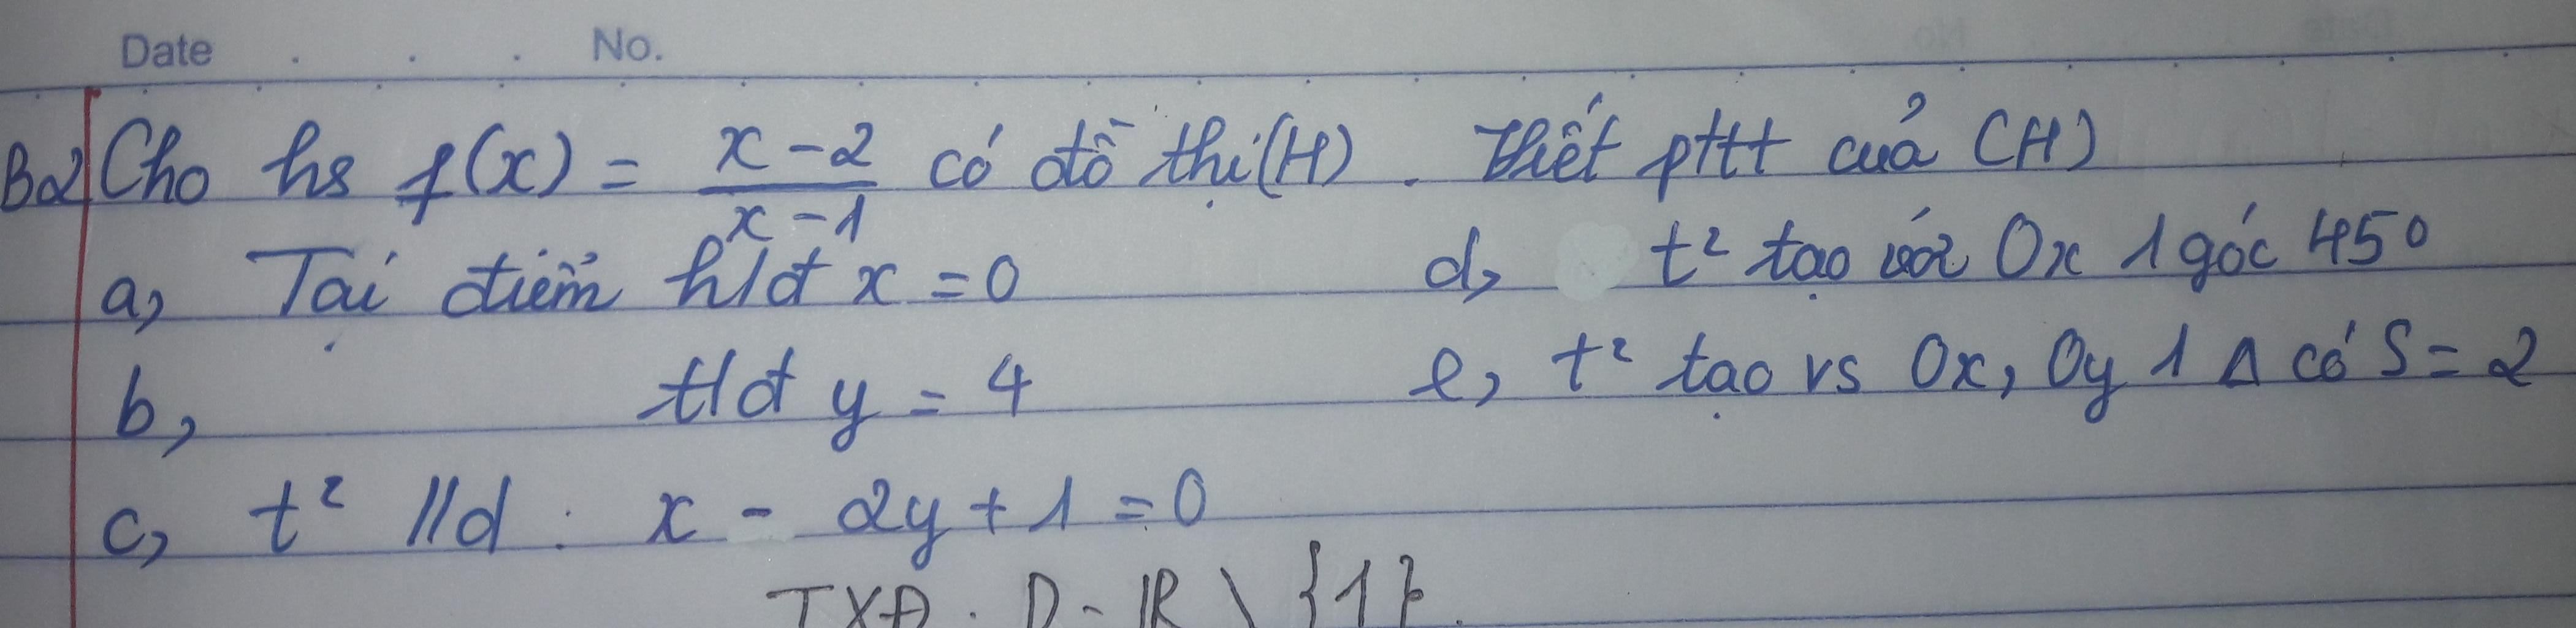 Date . . . No.
B2 Cho hs f(x) = \frac{x-2}{x-1} có đồ thị (H). Viết pttt của (H)
a, Tại điểm h/đ x = 0
b, t/đ y = 4
c, t² // d : x - 2y + 1 = 0
d, t² tạo với Ox 1 góc 45°
e, t² tạo vs Ox, Oy 1 Δ có S = 2
TXĐ : D = ℝ \ {1}.